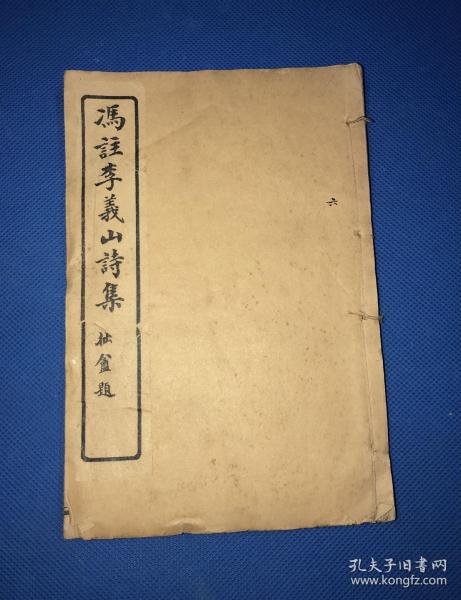 馮註李義山詩集
拙盦題
六
孔夫子旧书网
www.kongfz.com